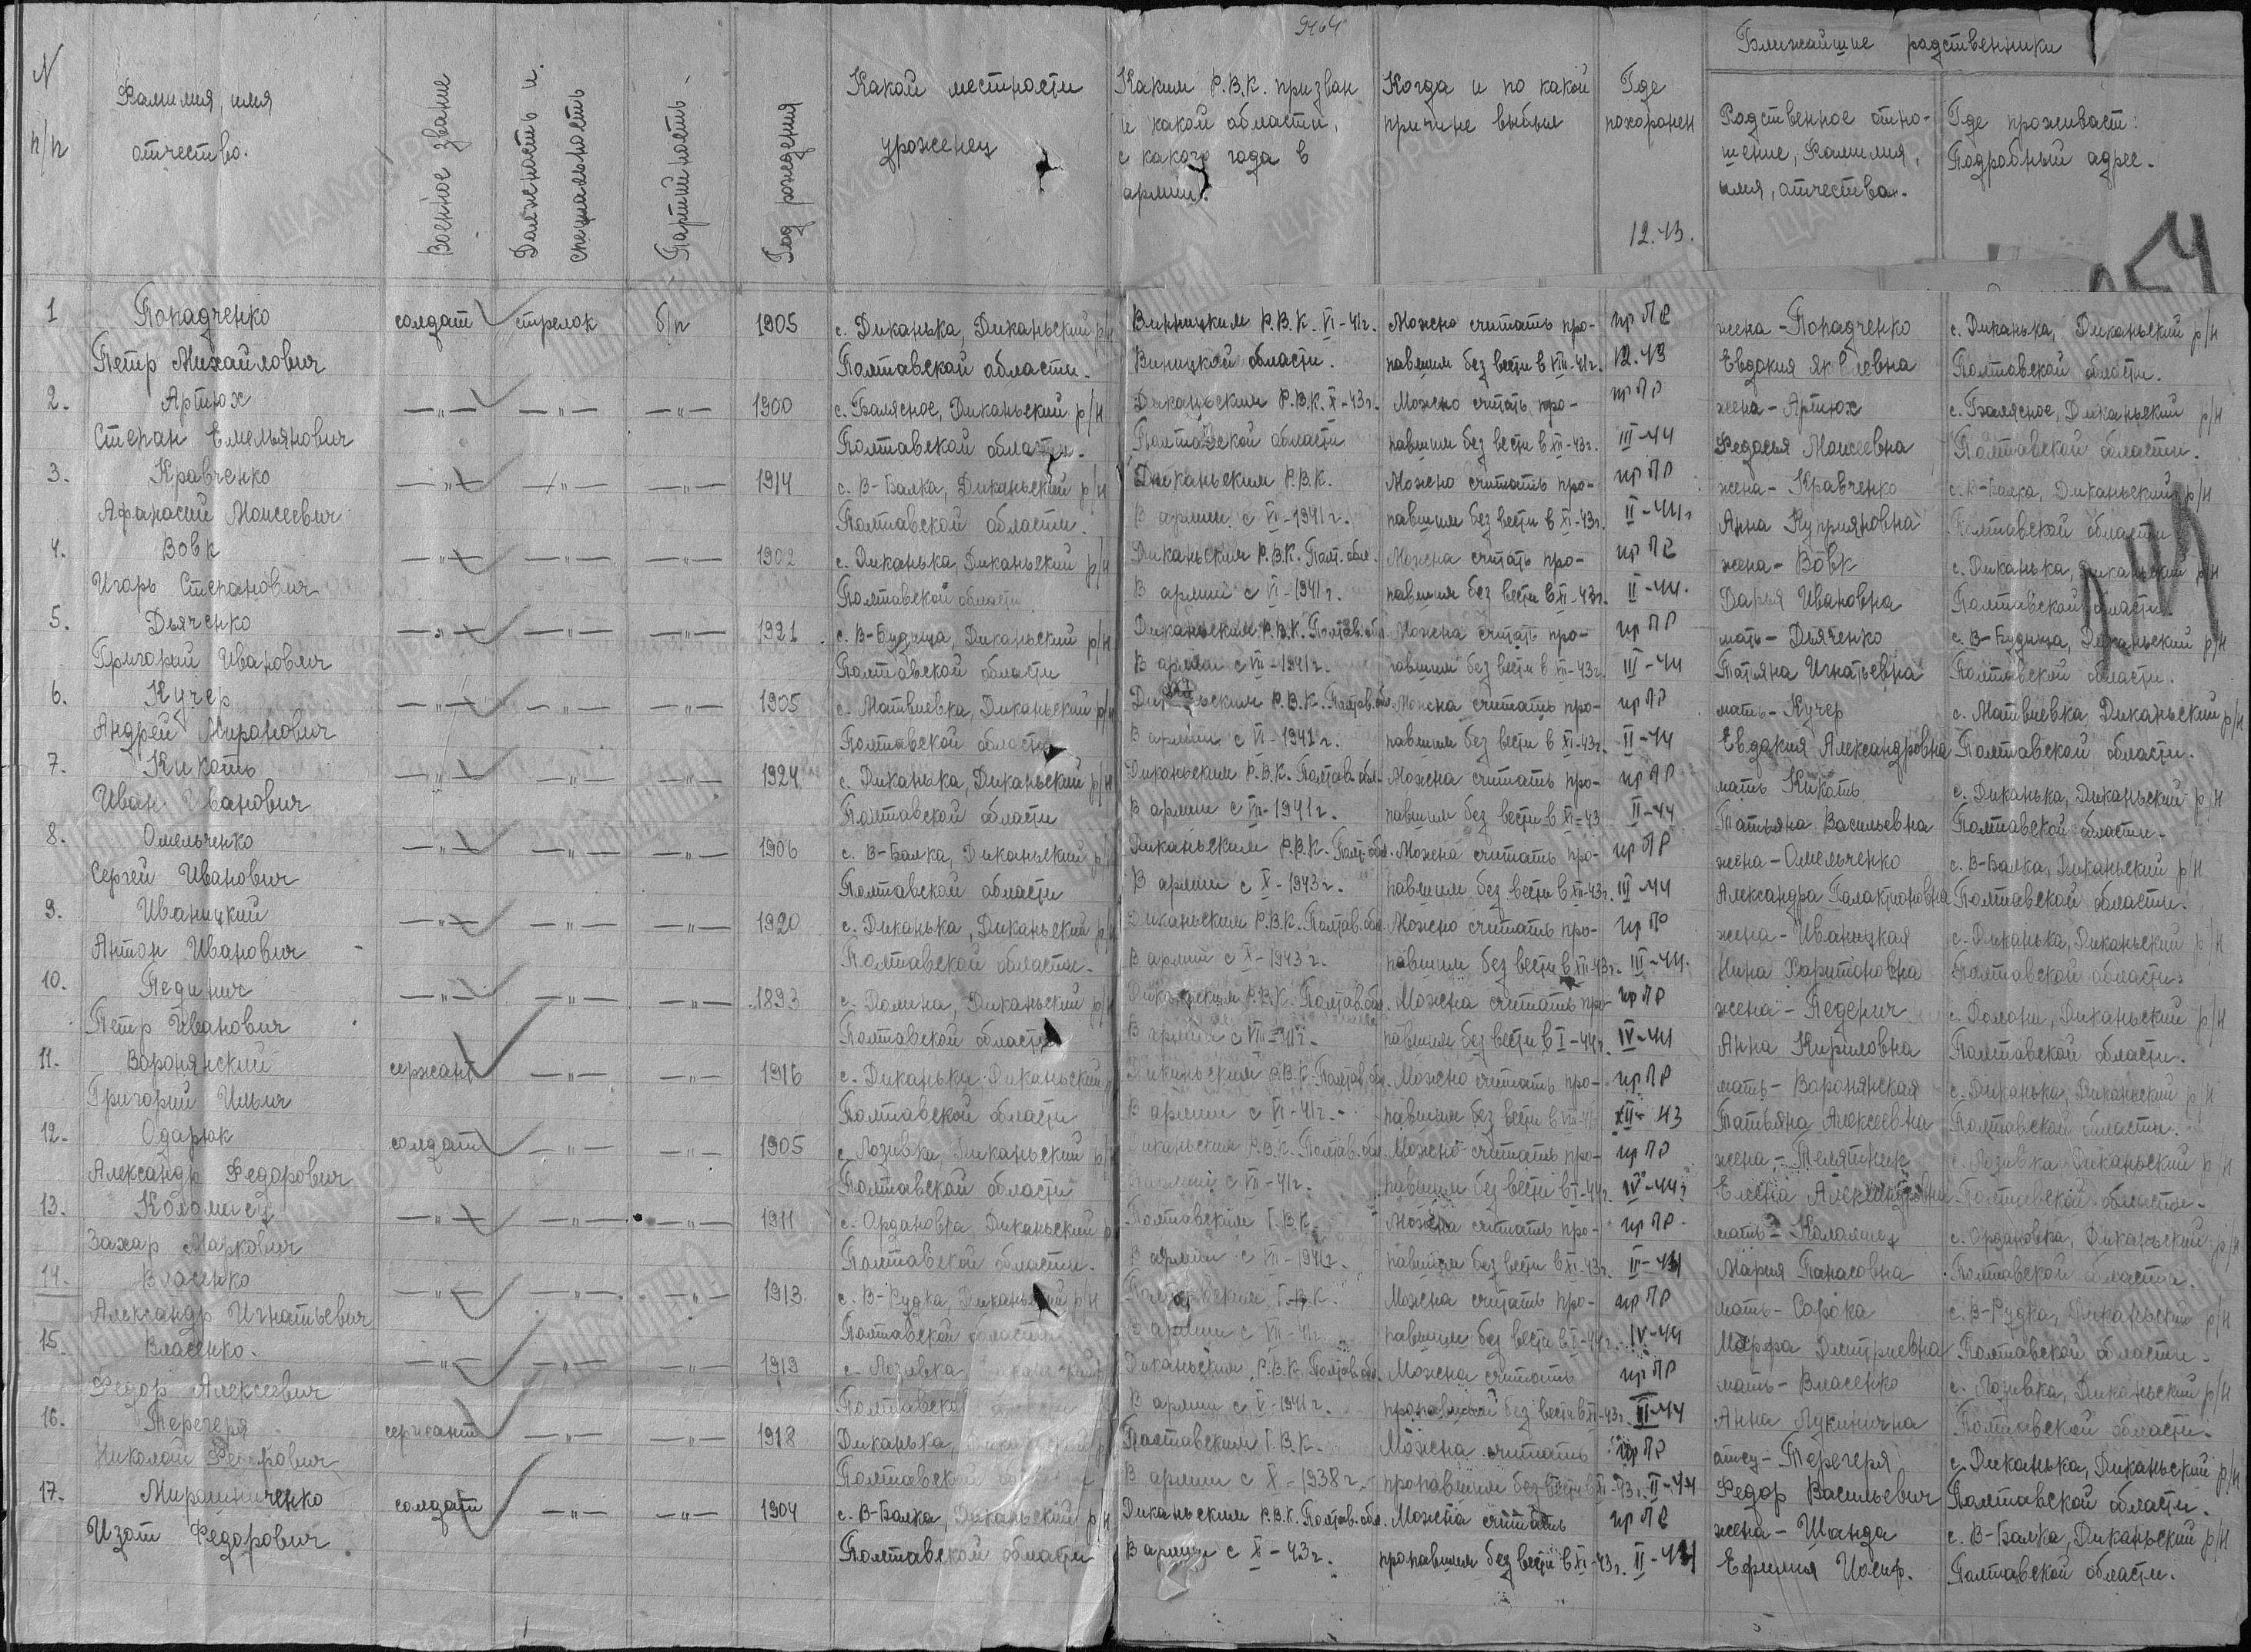 9464
Ближайшие родственники
N п/п
Фамилия, имя отчество.
Военное звание
Должность и специальность
Партийность
Год рождения
Какой местности уроженец
Каким Р.В.К. призван и какой области, с какого года в армии.
Когда и по какой причине выбыл
Где похоронен
12.43.
Родственное отношение, Фамилия, имя, отчество.
Где проживает: Подробный адрес.
1 Покадченко солдат стрелок б/п 1905 с. Диканька, Диканьский р/н Винницким Р.В.К. VI-41г. Можно считать про- пр ПР жена - Покадченко с. Диканька, Диканьский р/н
Петр Михайлович Полтавской области. Виницкой области. павшим без вести в VIII-41г. 12.43 Евдокия Яковлевна Полтавской области.
2. Артюх —"— —"— —"— 1900 с. Балясное, Диканьский р/н Диканьским Р.В.К. X-43г. Можно считать про- пр ПР жена - Артюх с. Балясное, Диканьский р/н
Степан Емельянович Полтавской области. Полтавской области павшим без вести в XII-43г. III-44 Федосья Моисеевна Полтавской области.
3. Кравченко —"— —"— —"— 1914 с. В-Балка, Диканьский р/н Диканьским Р.В.К. Можно считать про- пр ПР жена - Кравченко с. В-Балка, Диканьский р/н
Афанасий Моисеевич Полтавской области. В армии с VI-1941г. павшим без вести в XI-43г. II-44г Анна Куприяновна Полтавской области
4. Вовк —"— —"— —"— 1902 с. Диканька, Диканьский р/н Диканьским Р.В.К. Полт. обл. Можна считать про- пр ПР жена - Вовк с. Диканька, Диканьский р/н
Игорь Степанович Полтавской области В армии с VI-1941г. павшим без вести в XI-43г. II-44. Дарья Ивановна Полтавской области.
5. Дьяченко —"— —"— —"— 1921 с. В-Будища, Диканьский р/н Диканьским Р.В.К. Полтав. обл. Можна считать про- пр ПР мать - Дьяченко с. В-Будища, Диканьский р/н
Григорий Иванович Полтавской области В армии с VII-1941г. павшим без вести в XII-43г. III-44 Татьяна Игнатьевна Полтавской области.
6. Кучер —"— —"— —"— 1905 с. Матвиевка, Диканьский р/н Диканьским Р.В.К. Полтав. обл. Можна считать про- пр ПР мать - Кучер с. Матвиевка, Диканьский р/н
Андрей Миронович Полтавской области В армии с VI-1941г. павшим без вести в XI-43г. II-44 Евдакия Александровна Полтавской области.
7. Кикоть —"— —"— —"— 1924 с. Диканька, Диканьский р/н Диканьским Р.В.К. Полтав. обл. Можна считать про- пр ПР мать Кикоть с. Диканька, Диканьский р/н
Иван Иванович Полтавской области В армии с VII-1941г. павшим без вести в XI-43 II-44 Татьяна Васильевна Полтавской области.
8. Омельченко —"— —"— —"— 1906 с. В-Балка, Диканьский р/н Диканьским Р.В.К. Полт. обл. Можна считать про- пр ПР жена - Омельченко с. В-Балка, Диканьский р/н
Сергей Иванович Полтавской области В армии с X-1943г. павшим без вести в XII-43г. III-44 Александра Галактионовна Полтавской области.
9. Иваницкий —"— —"— —"— 1920 с. Диканька, Диканьский р/н Диканьским Р.В.К. Полтав. обл. Можно считать про- пр ПР жена - Иваницкая с. Диканька, Диканьский р/н
Антон Иванович Полтавской области. В армии с X-1943г. павшим без вести в XII-43г. III-44. Нина Харитоновна Полтавской области.
10. Пединич —"— —"— —"— 1893 с. Долина, Диканьский р/н Диканьским Р.В.К. Полтав. обл. Можна считать про- пр ПР жена - Педенич с. Долони, Диканьский р/н
Петр Иванович Полтавской области В армии с VIII-41г. павшим без вести в I-44г. IV-44 Анна Кириловна Полтавской области.
11. Воронянский сержант —"— —"— 1916 с. Диканька, Диканьский Диканьским Р.В.К. Полтав. обл. Можно считать про- пр ПР мать - Воронянская с. Диканька, Диканьский р/н
Григорий Ильич Полтавской области В армии с VI-41г. павшим без вести в XII-43 Татьяна Алексеевна Полтавской области.
12. Одарюк солдат —"— —"— 1905 с. Лозивка, Диканьский р/н Диканьским Р.В.К. Полтав. обл. Можно считать про- пр ПР жена - Телятник с. Лозивка, Диканьский р/н
Александр Федорович Полтавской области В армии с VII-41г. павшим без вести в I-44г. IV-44г Елена Александровна Полтавской области.
13. Коломиец —"— —"— —"— 1911 с. Ордановка, Диканьский р Полтавским Г.В.К. Можна считать про- пр ПР. мать - Коломиец с. Ордановка, Диканьский р/н
Захар Маркович Полтавской области. В армии с VII-1941г. павшим без вести в XI-43г. II-44 Мария Панасовна Полтавской области.
14. Власенко —"— —"— —"— 1913 с. В-Рудка, Диканьский р/н Полтавским Г.В.К. Можна считать про- пр ПР мать - Сорока с. В-Рудка, Диканьский р/н
Александр Игнатьевич Полтавской области В армии с VII-41г. павшим без вести в I-44г. IV-44 Марфа Дмитриевна Полтавской области.
15. Власенко. —"— —"— —"— 1919 с. Лозивка, Диканьский Диканьским Р.В.К. Полтав. обл. Можна считать пр ПР мать - Власенко с. Лозивка, Диканьский р/н
Федор Алексеевич Полтавской В армии с V-1941г. пропавшим без вести в XI-43г. II-44 Анна Лукинична Полтавской области.
16. Терегеря сержант —"— —"— 1918 Диканька, Диканьский р Полтавским Г.В.К. Можна считать пр ПР отец - Терегеря с. Диканька, Диканьский р/н
Николай Федорович Полтавской В армии с X-1938г. пропавшим без вести в XI-43г. II-44 Федор Васильевич Полтавской области.
17. Мирошниченко солдат —"— —"— 1904 с. В-Балка, Диканьский р/н Диканьским Р.В.К. Полтав. обл. Можна считать пр ПР жена - Шанда с. В-Балка, Диканьский р/н
Изот Федорович Полтавской области В армии с X-43г. пропавшим без вести в XI-43г. II-44 Ефимия Иосиф. Полтавской области.